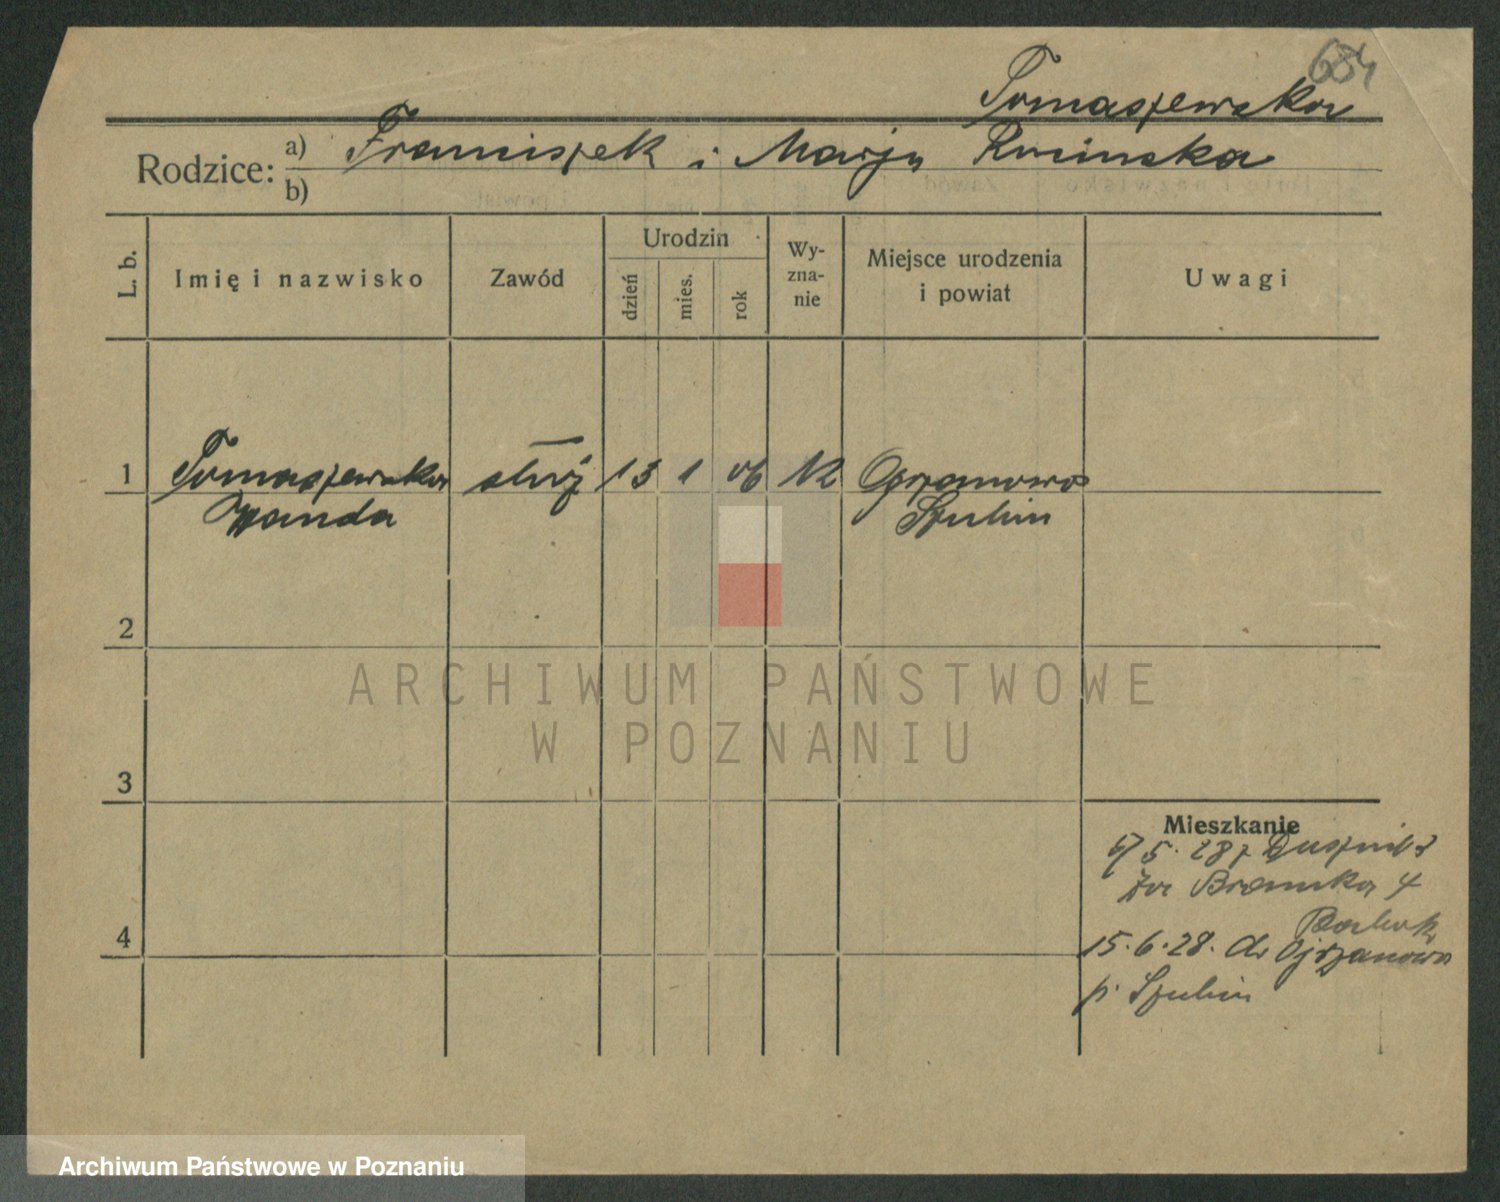 684
Tomaszewska
Rodzice: a) Franciszek i Marja Rosinska
b)
L. b. Imię i nazwisko Zawód Urodzin dzień mies. rok Wy-zna-nie Miejsce urodzenia i powiat Uwagi
1 Tomaszewska służ 13 1 06 K Ojrzanowo
Wanda Szubin
2
ARCHIWUM PAŃSTWOWE
W POZNANIU
3
Mieszkanie
5.28 z Duszniki
4
15.6.28. do Ojrzanowo
p. Szubin
Archiwum Państwowe w Poznaniu